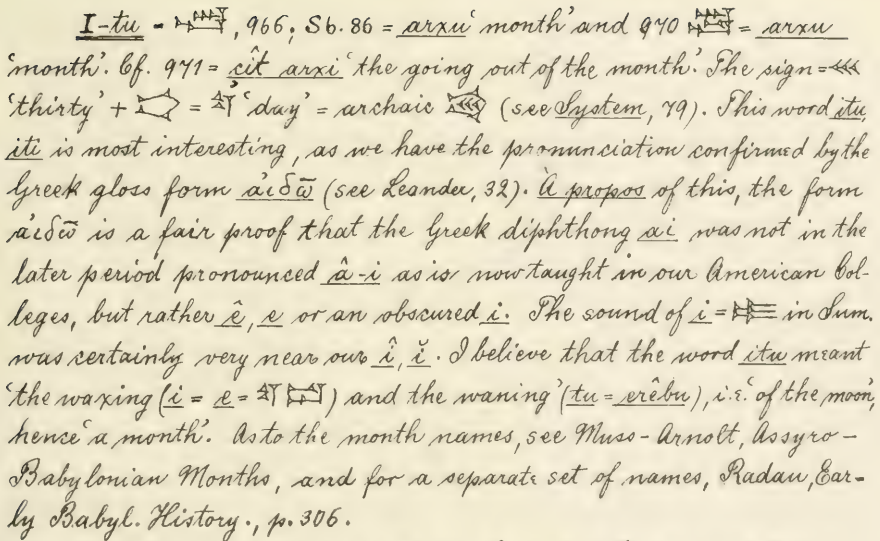 I-tu = 𒌗, 966; Sb. 86 = arxu 'month' and 970 = arxu
'month'. Cf. 971 = çît arxi 'the going out of the month'. The sign = 𒌍
'thirty' + = 'day' = archaic (see System, 79). This word itu,
iti is most interesting, as we have the pronunciation confirmed by the
Greek gloss form ἀιδω̄ (see Leander, 32). A propos of this, the form
ἀιδω̄ is a fair proof that the Greek diphthong ai was not in the
later period pronounced â-i as is now taught in our American Col-
leges, but rather ê, e or an obscured i. The sound of i = in Sum.
was certainly very near our î, ĭ. I believe that the word itu meant
'the waxing (i = e = ) and the waning' (tu = erêbu), i.e. 'of the moon',
hence 'a month'. As to the month names, see Muss-Arnolt, Assyro-
Babylonian Months, and for a separate set of names, Radau, Ear-
ly Babyl. History., p. 306.